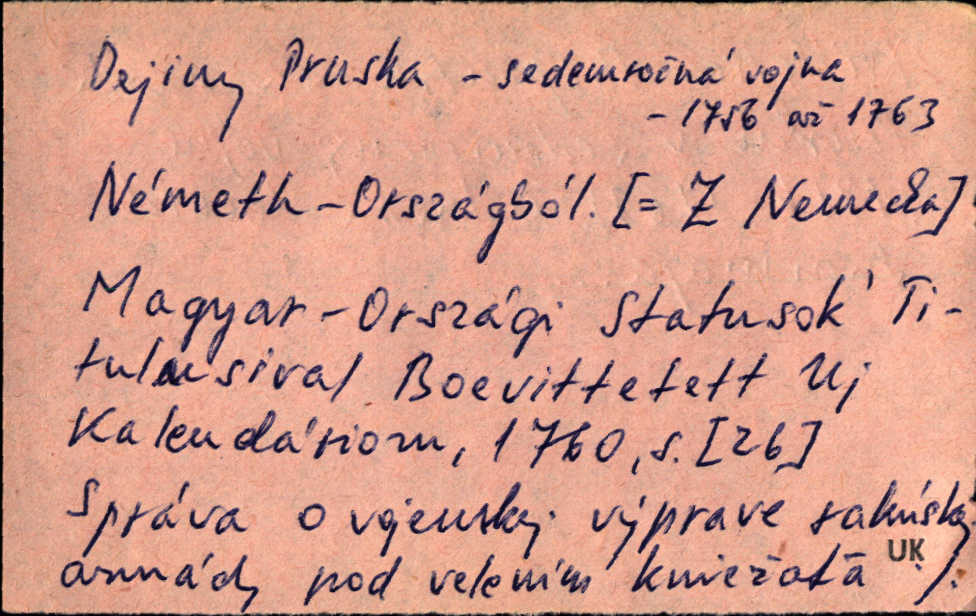 Dejiny Pruska - sedemročná vojna
- 1756 až 1763
Németh-Országból. [= Z Nemecka]
Magyar-Országi Statusok' Ti-
tulusival Boevittetett Uj
Kalendáriom, 1760, s. [26]
Správa o vojenskej výprave rakúskej
armády pod velením kniežaťa
UK